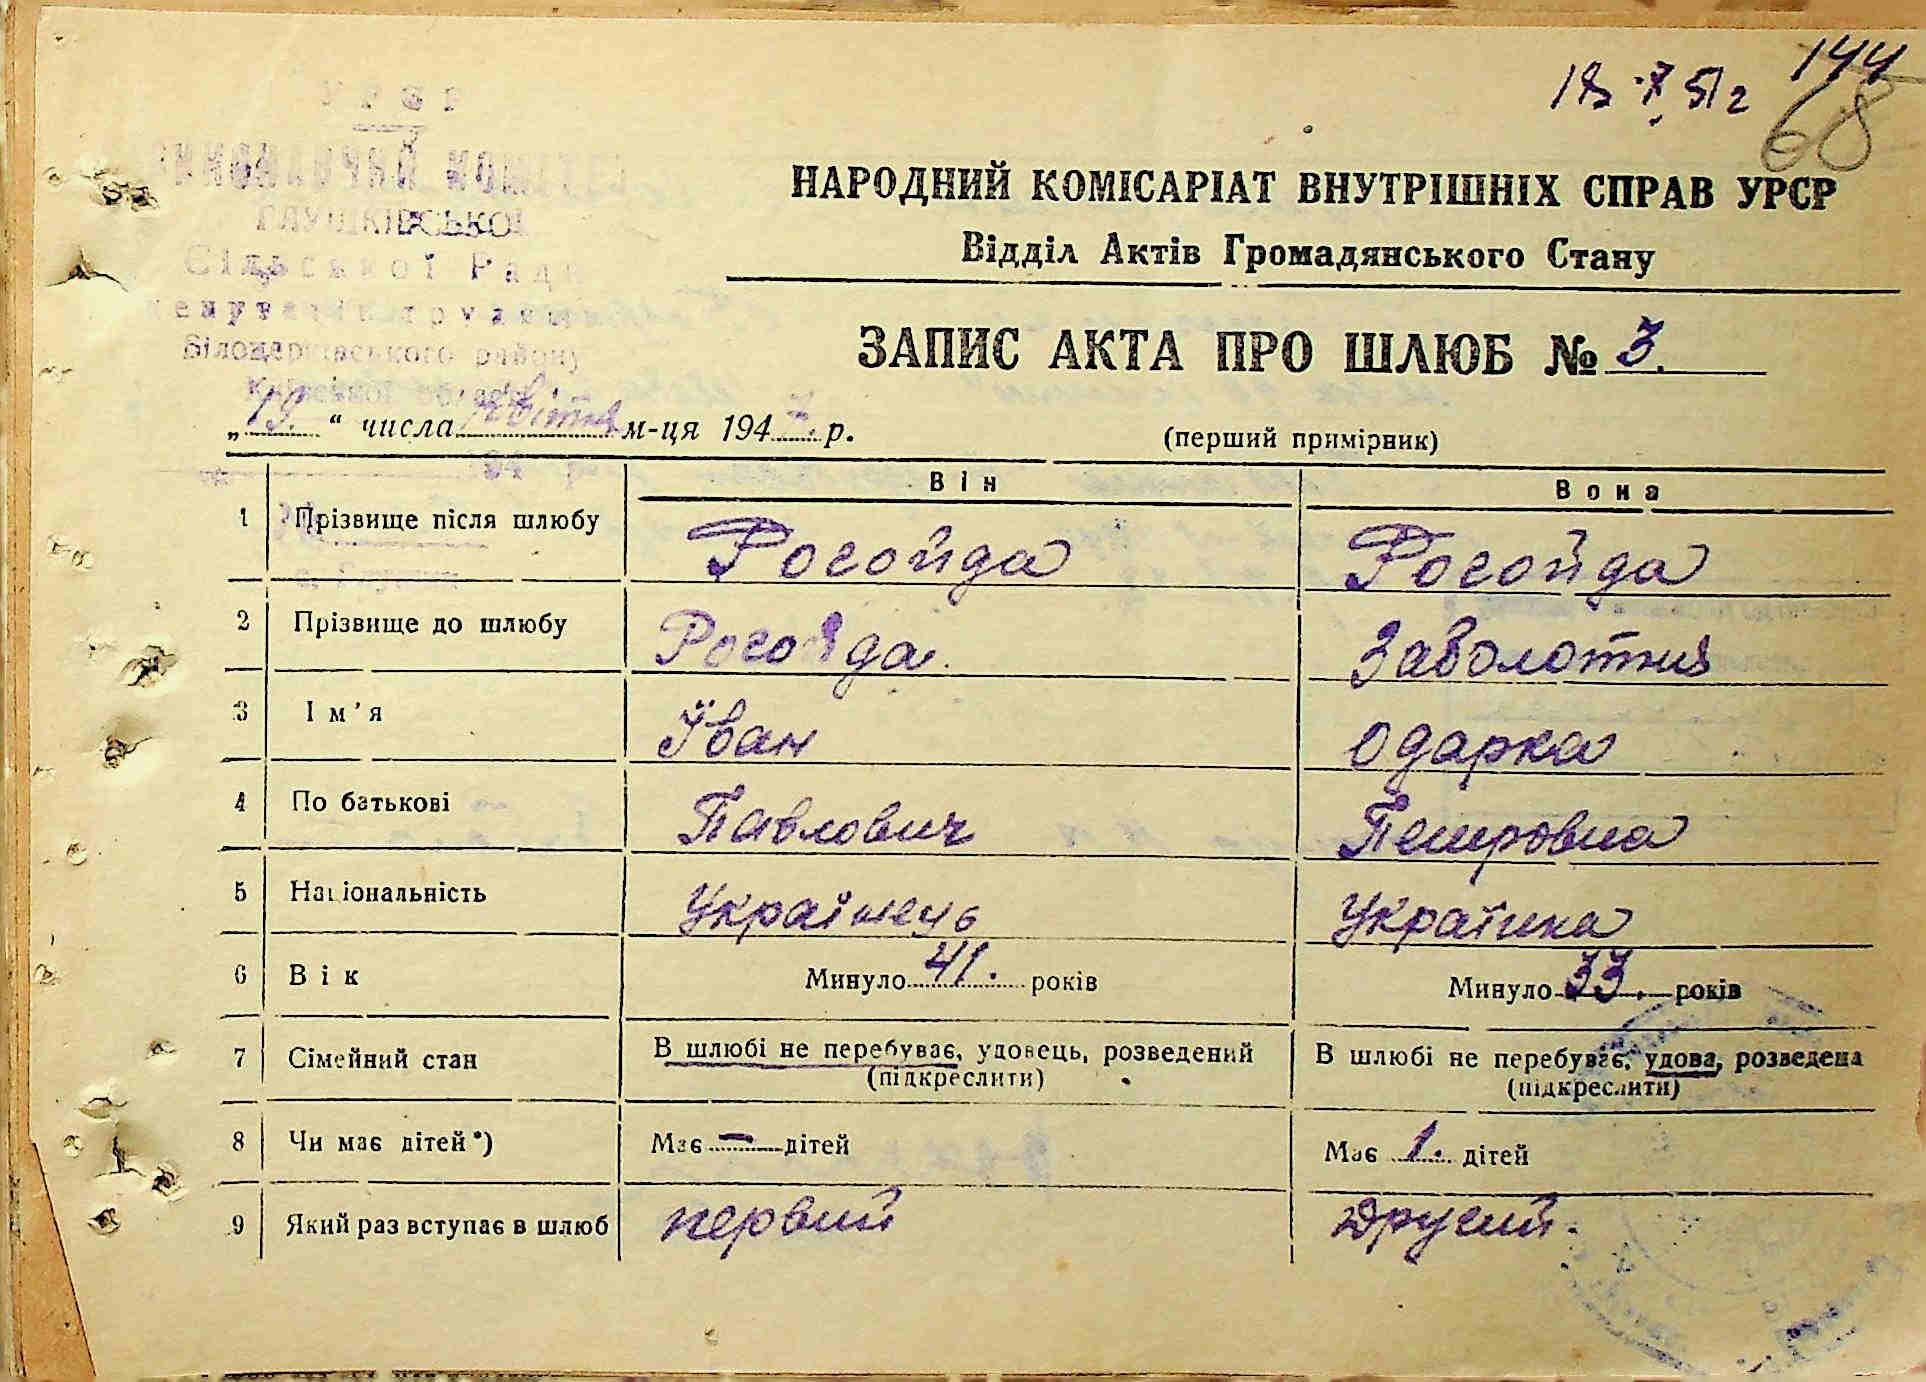 144
18 7 51 г
68
УРСР
ВИКОНАВЧИЙ КОМІТЕТ
ГЛУШКІВСЬКОЇ
Сільської Ради
депутатів трудящих
Білоцерківського району
Київської області
НАРОДНИЙ КОМІСАРІАТ ВНУТРІШНІХ СПРАВ УРСР
Відділ Актів Громадянського Стану
ЗАПИС АКТА ПРО ШЛЮБ № 3.
„19.“ числа квітня м-ця 1947. р.
(перший примірник)
194 р
Він Вона
1 Прізвище після шлюбу Рогойда Рогойда
2 Прізвище до шлюбу Рогойда. Заболотня
3 Ім'я Їван Одарка
4 По батькові Павлович Петровна
5 Національність Українець Українка
6 Вік Минуло 41. років Минуло 33. років
7 Сімейний стан В шлюбі не перебуває, удовець, розведений В шлюбі не перебуває, удова, розведена
(підкреслити) (підкреслити)
8 Чи має дітей*) Має – дітей Має 1. дітей
9 Який раз вступає в шлюб первий Другий.